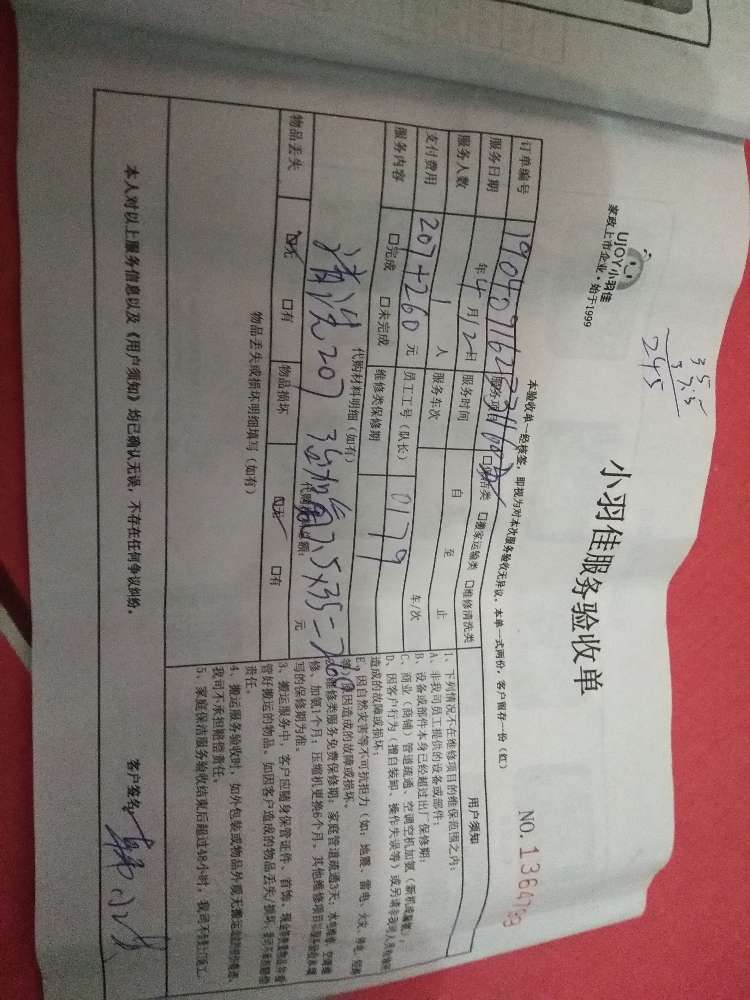 35
3 3.5
245
UJOY小羽佳
家政上市企业·始于1999
小羽佳服务验收单
NO.1364789
本验收单一经核签，即视为对本次服务验收无异议，本单一式两份，客户留存一份（红）
订单编号
服务项目 口保洁类 口搬家运输类 口维修清洗类
服务日期 年4月12日 服务时间 自 至 止
服务人数 1人 服务车次 车/次
支付费用 207+260元 员工工号（队长） 0179
服务内容 口完成 口未完成 维修类保修期
代购材料明细（如有）
清洗207 7.5×35=260
代购 总额： 元
物品丢失 口无 口有 物品损坏 口无 口有
物品丢失或损坏明细填写（如有）
用户须知
1、下列情况不在维修项目的维保范围之内：
A、非我司员工提供的设备或部件；
B、设备或部件本身已经超过出厂保修期；
C、商业（商铺）管道疏通、空调空机加氨（新机或漏氨）；
D、因客户行为（擅自装卸、操作失误等）或另请非我司人员维修
造成的故障或损坏；
E、因自然灾害等不可抗拒力（如：地震、雷电、火灾、停电、短路
等）原因造成的故障或损坏。
维修类服务免费保修期：家庭管道疏通3天；
修、加氨1个月；压缩机更换6个月，其他维修项目
写的保修期为准。
3、搬运服务中，客户应随身保管证件、首饰、现金等贵重物品并看
管好搬运的物品。如因客户造成的物品丢失/损坏，我司不承担赔偿
责任。
4、搬运服务验收时，如外包装或物品外观无搬运
我司不承担赔偿责任。
5、家庭保洁服务验收结束后超过48小时，我司不负责上门返工。
本人对以上服务信息以及《用户须知》均已确认无误，不存在任何争议纠纷。
客户签名：